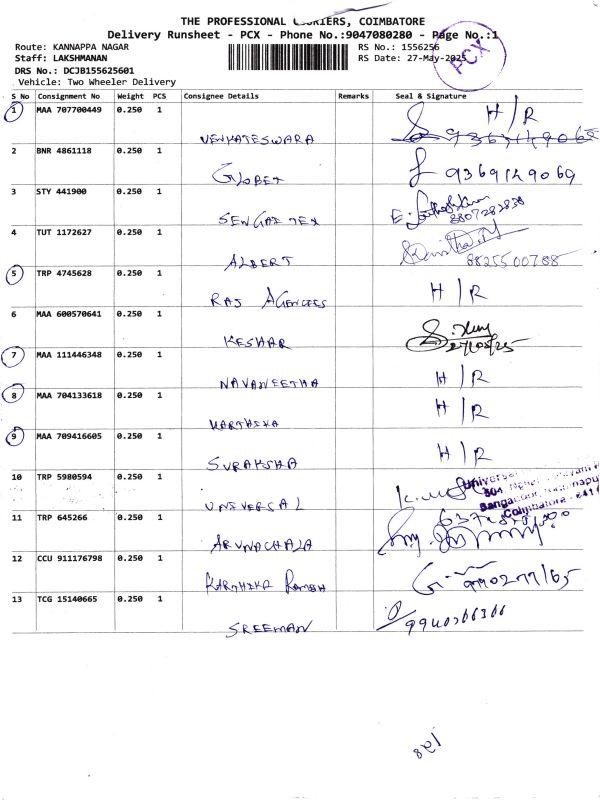 THE PROFESSIONAL COURIERS, COIMBATORE
Delivery Runsheet - PCX - Phone No.:9047080280 - Page No.:1
Route: KANNAPPA NAGAR
RS No.: 1556256
Staff: LAKSHMANAN
RS Date: 27-May-2025
PCX
DRS No.: DCJB155625601
Vehicle: Two Wheeler Delivery
S No Consignment No Weight PCS Consignee Details Remarks Seal & Signature
1 MAA 707700449 0.250 1 H/R
VENKATESWARA
2 BNR 4861118 0.250 1 9369149069
GLOBET
3 STY 441900 0.250 1
SENGAI TEX
4 TUT 1172627 0.250 1
ALBERT 8825500788
5 TRP 4745628 0.250 1 H/R
RAJ AGENCEES
6 MAA 600570641 0.250 1
KESHAR 27/05/25
7 MAA 111446348 0.250 1 H/R
NAVANEETHA
8 MAA 704133618 0.250 1 H/R
KARTHIKA
9 MAA 709416605 0.250 1 H/R
SURAKSHA
10 TRP 5980594 0.250 1
UNIVERSAL Coimbatore
11 TRP 645266 0.250 1
ARUNACHALA
12 CCU 911176798 0.250 1
KARTHIKA RAMESH
13 TCG 15140665 0.250 1
SREEMAN